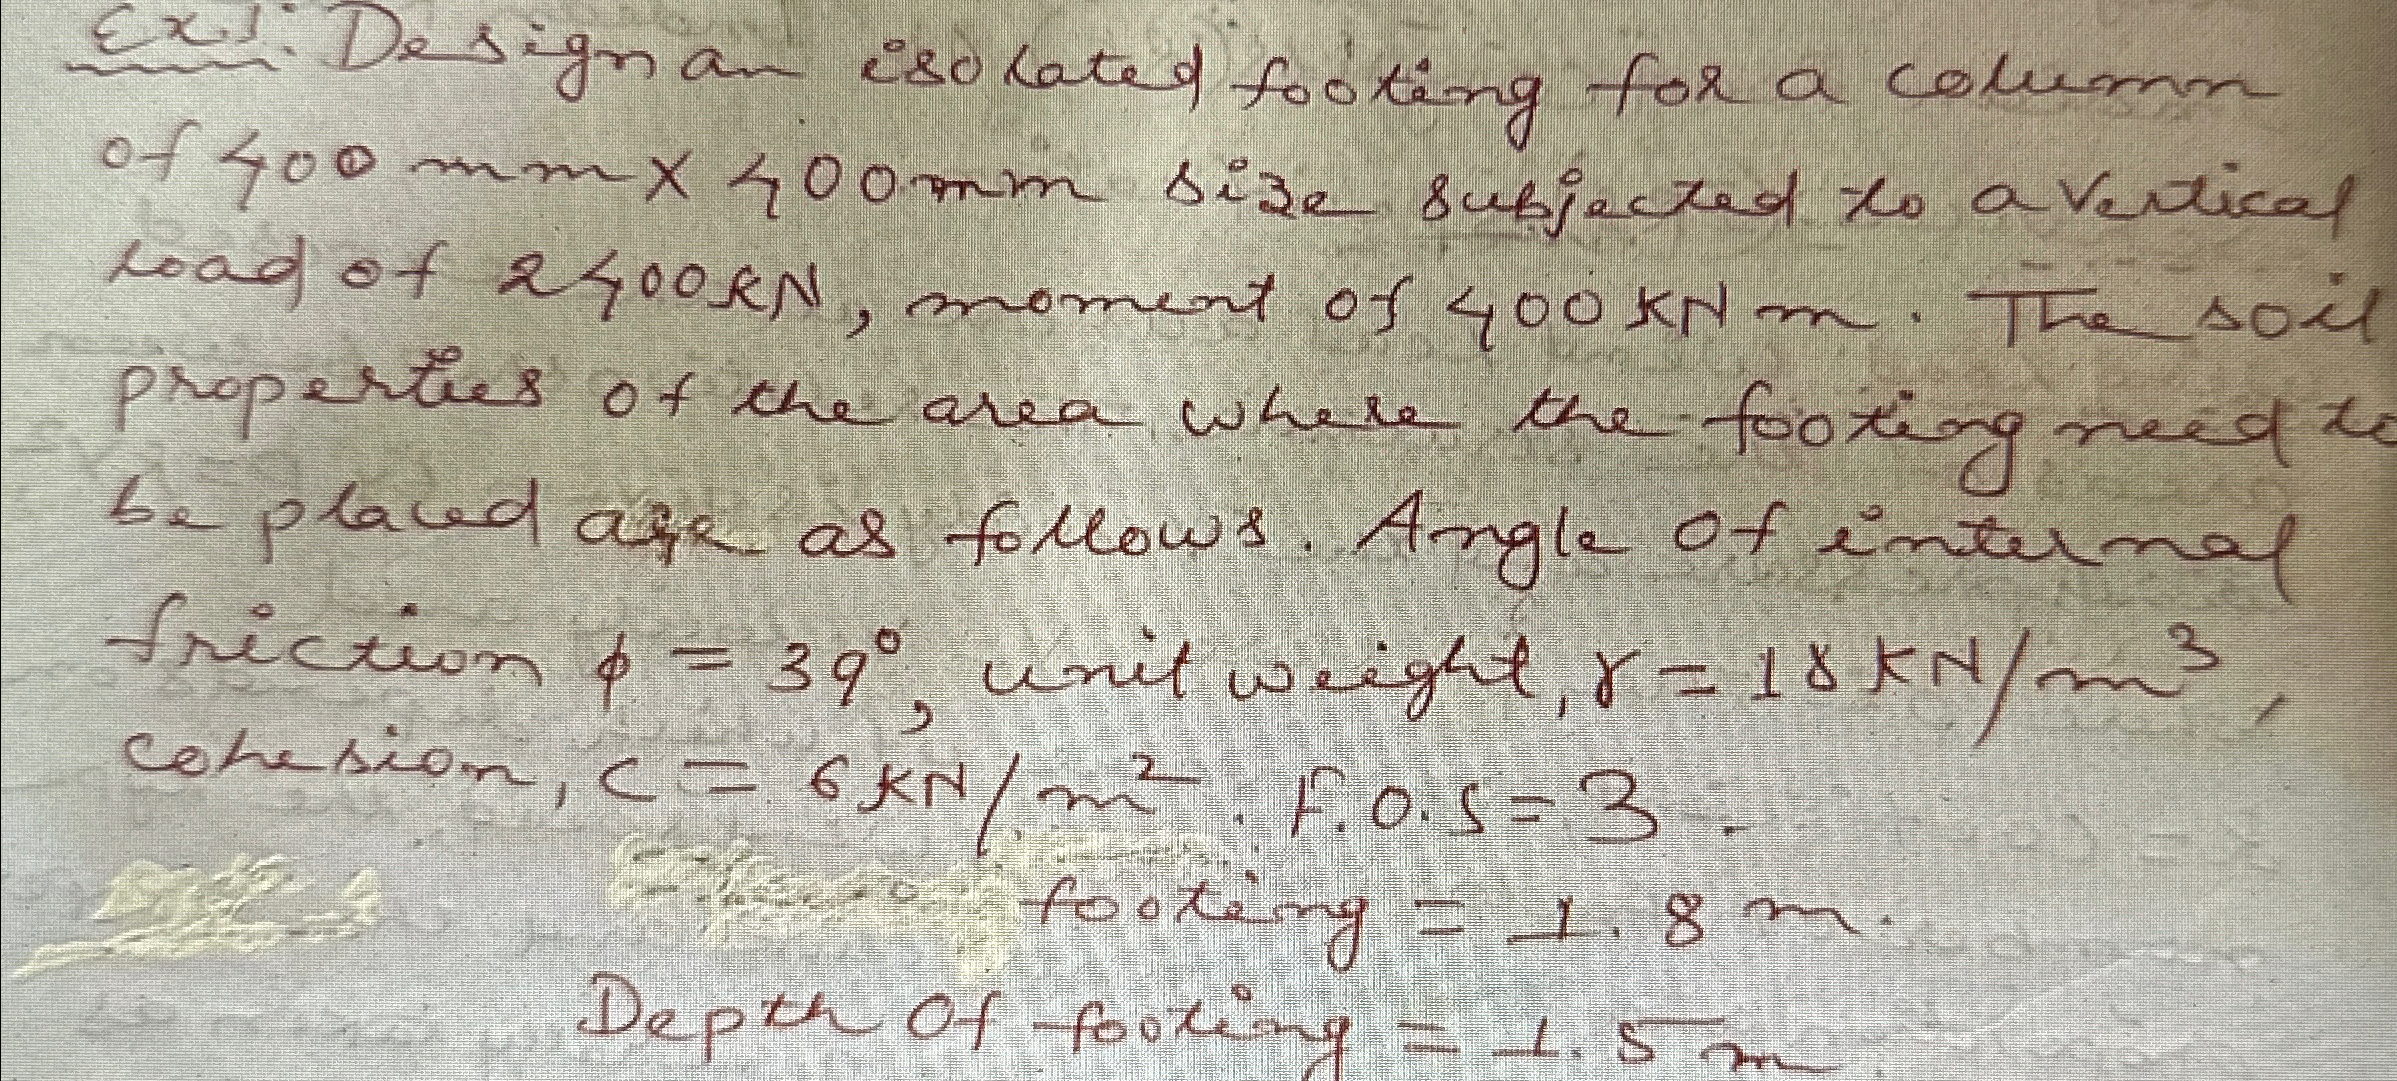 Ex1: Design an isolated footing for a column
of 400 mm X 400 mm size subjected to a vertical
load of 2400 KN, moment of 400 KN m. The soil
properties of the area where the footing need to
be placed are as follows. Angle of internal
friction ϕ = 39°, unit weight, γ = 18 KN/m³,
cohesion, c = 6 KN/m². F.O.S = 3.
footing = 1.8 m.
Depth of footing = 1.5 m